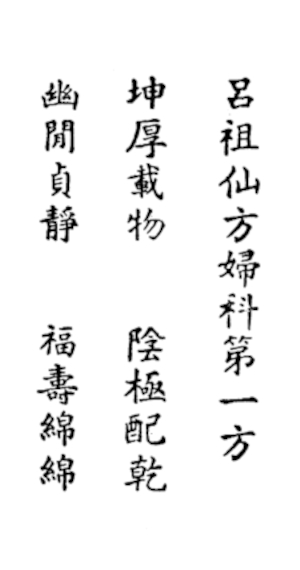 呂祖仙方婦科第一方
坤厚載物　陰極配乾
幽閒貞靜　福壽綿綿